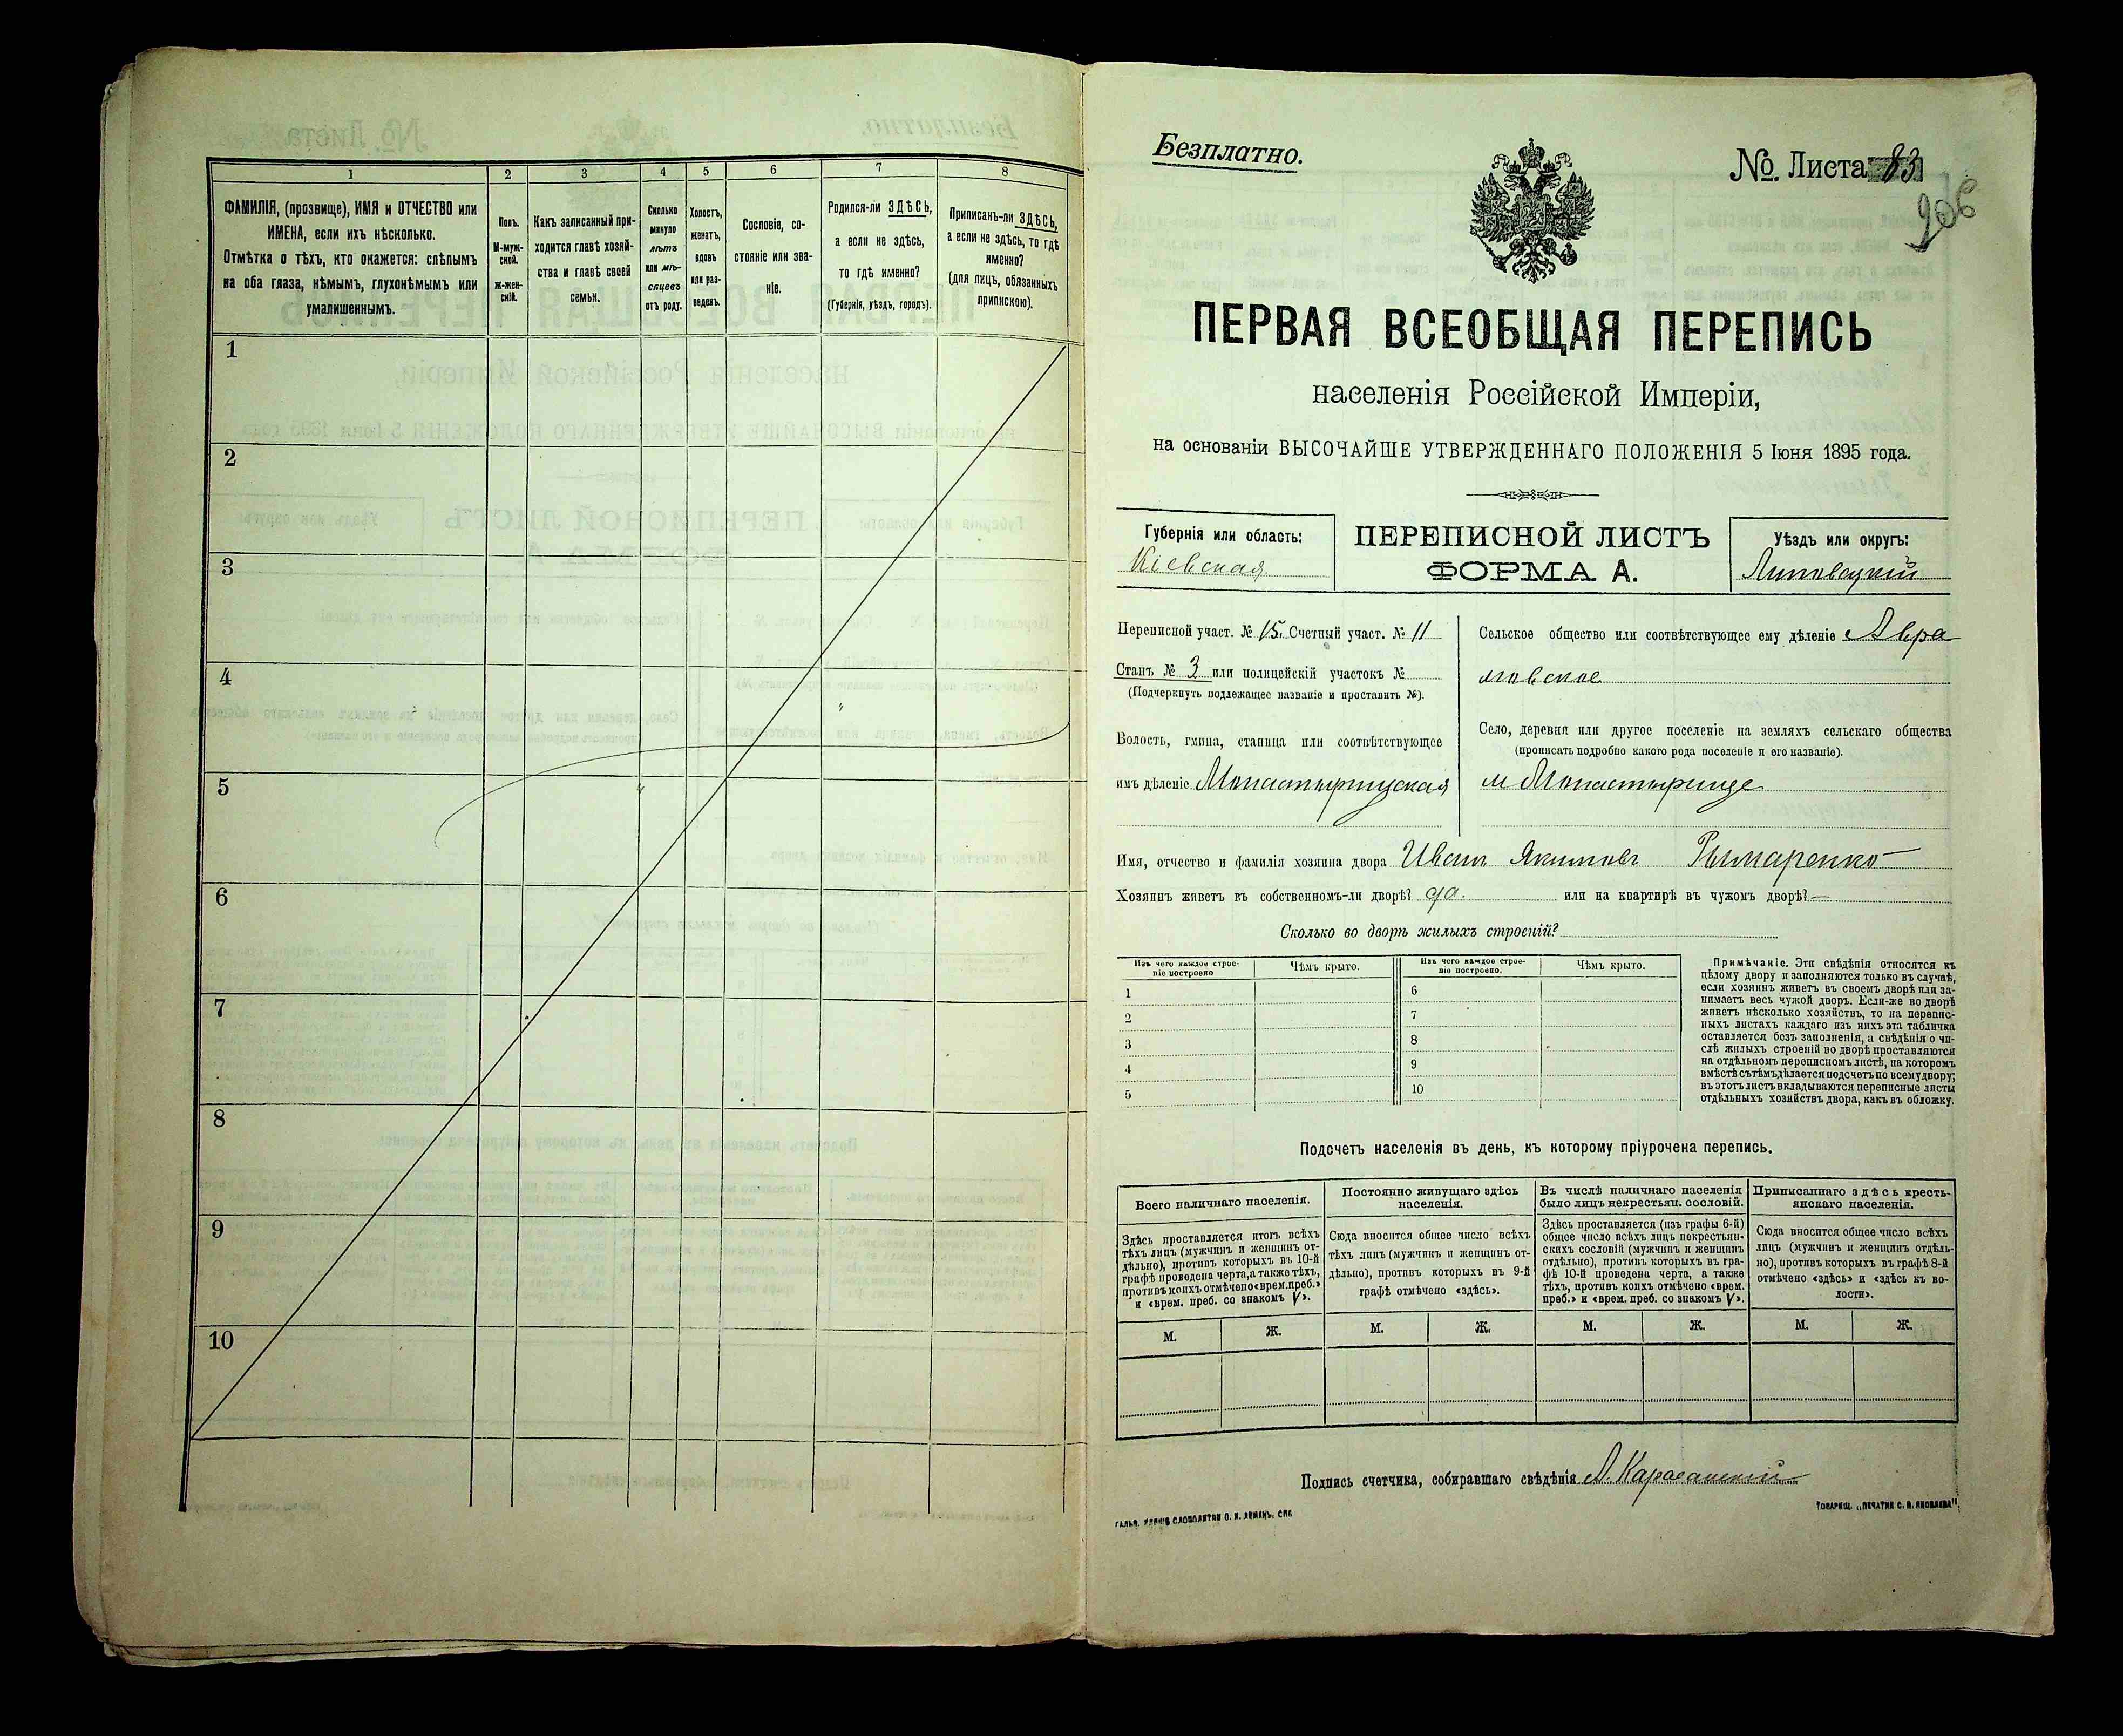 1
2
3
4
5
6
7
8
ФАМИЛІЯ, (прозвище), ИМЯ и ОТЧЕСТВО или
ИМЕНА, если ихъ нѣсколько.
Отмѣтка о тѣхъ, кто окажется: слѣпымъ
на оба глаза, нѣмымъ, глухонѣмымъ или
умалишеннымъ.
Полъ.
М-муж-
ской.
ж-жен-
скій.
Какъ записанный при-
ходится главѣ хозяй-
ства и главѣ своей
семьи.
Сколько
минуло
лѣтъ
или мѣ-
сяцевъ
отъ роду.
Холостъ,
женатъ,
вдовъ
или раз-
веденъ.
Сословіе, со-
стояніе или зва-
ніе.
Родился-ли ЗДѢСЬ,
а если не здѣсь,
то гдѣ именно?
(Губернія, уѣздъ, городъ).
Приписанъ-ли ЗДѢСЬ,
а если не здѣсь, то гдѣ
именно?
(для лицъ, обязанныхъ
припискою).
1
2
3
4
5
6
7
8
9
10
Безплатно.
№. Листа 83
206
ПЕРВАЯ ВСЕОБЩАЯ ПЕРЕПИСЬ
населенія Россійской Имперіи,
на основаніи ВЫСОЧАЙШЕ УТВЕРЖДЕННАГО ПОЛОЖЕНІЯ 5 Іюня 1895 года.
Губернія или область:
Кіевская
ПЕРЕПИСНОЙ ЛИСТЪ
ФОРМА А.
Уѣздъ или округъ:
Липовецкій
Переписной участ. № 15. Счетный участ. № 11
Станъ № 3 или полицейскій участокъ №
(Подчеркнуть подлежащее названіе и проставить №).
Волость, гмина, станица или соотвѣтствующее
имъ дѣленіе Монастырищская
Сельское общество или соотвѣтствующее ему дѣленіе Авра
мовское
Село, деревня или другое поселеніе на земляхъ сельскаго общества
(прописать подробно какого рода поселеніе и его названіе).
м Монастырище
Имя, отчество и фамилія хозяина двора Иванъ Якимовъ Рымаренко
Хозяинъ живетъ въ собственномъ-ли дворѣ? да. или на квартирѣ въ чужомъ дворѣ? —
Сколько во дворѣ жилыхъ строеній?
Изъ чего каждое строе-
ніе построено
Чѣмъ крыто.
Изъ чего каждое строе-
ніе построено.
Чѣмъ крыто.
1
2
3
4
5
6
7
8
9
10
Примѣчаніе. Эти свѣдѣнія относятся къ
цѣлому двору и заполняются только въ случаѣ,
если хозяинъ живетъ въ своемъ дворѣ или за-
нимаетъ весь чужой дворъ. Если-же во дворѣ
живетъ нѣсколько хозяйствъ, то на перепис-
ныхъ листахъ каждаго изъ нихъ эта табличка
оставляется безъ заполненія, а свѣдѣнія о чи-
слѣ жилыхъ строеній во дворѣ проставляются
на отдѣльномъ переписномъ листѣ, на которомъ
вмѣстѣ съ тѣмъ дѣлается подсчетъ по всему двору;
въ этотъ листъ вкладываются переписные листы
отдѣльныхъ хозяйствъ двора, какъ въ обложку.
Подсчетъ населенія въ день, къ которому пріурочена перепись.
Всего наличнаго населенія.
Здѣсь проставляется итогъ всѣхъ
тѣхъ лицъ (мужчинъ и женщинъ от-
дѣльно), противъ которыхъ въ 10-й
графѣ проведена черта, а также тѣхъ,
противъ коихъ отмѣчено «врем. преб.»
и «врем. преб. со знакомъ V».
Постоянно живущаго здѣсь
населенія.
Сюда вносится общее число всѣхъ
тѣхъ лицъ (мужчинъ и женщинъ от-
дѣльно), противъ которыхъ въ 9-й
графѣ отмѣчено «здѣсь».
Въ числѣ наличнаго населенія
было лицъ некрестьян. сословій.
Здѣсь проставляется (изъ графы 6-й)
общее число всѣхъ лицъ некрестьян-
скихъ сословій (мужчинъ и женщинъ
отдѣльно), противъ которыхъ въ гра-
фѣ 10-й проведена черта, а также
тѣхъ, противъ коихъ отмѣчено «врем.
преб.» и «врем. преб. со знакомъ V».
Приписаннаго здѣсь кресть-
янскаго населенія.
Сюда вносится общее число всѣхъ
лицъ (мужчинъ и женщинъ отдѣль-
но), противъ которыхъ въ графѣ 8-й
отмѣчено «здѣсь» и «здѣсь къ во-
лости».
М. Ж. М. Ж. М. Ж. М. Ж.
Подпись счетчика, собиравшаго свѣдѣнія А.
ТОВАРИЩ. „ПЕЧАТНЯ С. П. ЯКОВЛЕВА".
СЛОВОЛИТНИ О. И. ЛЕМАНЪ, СПБ